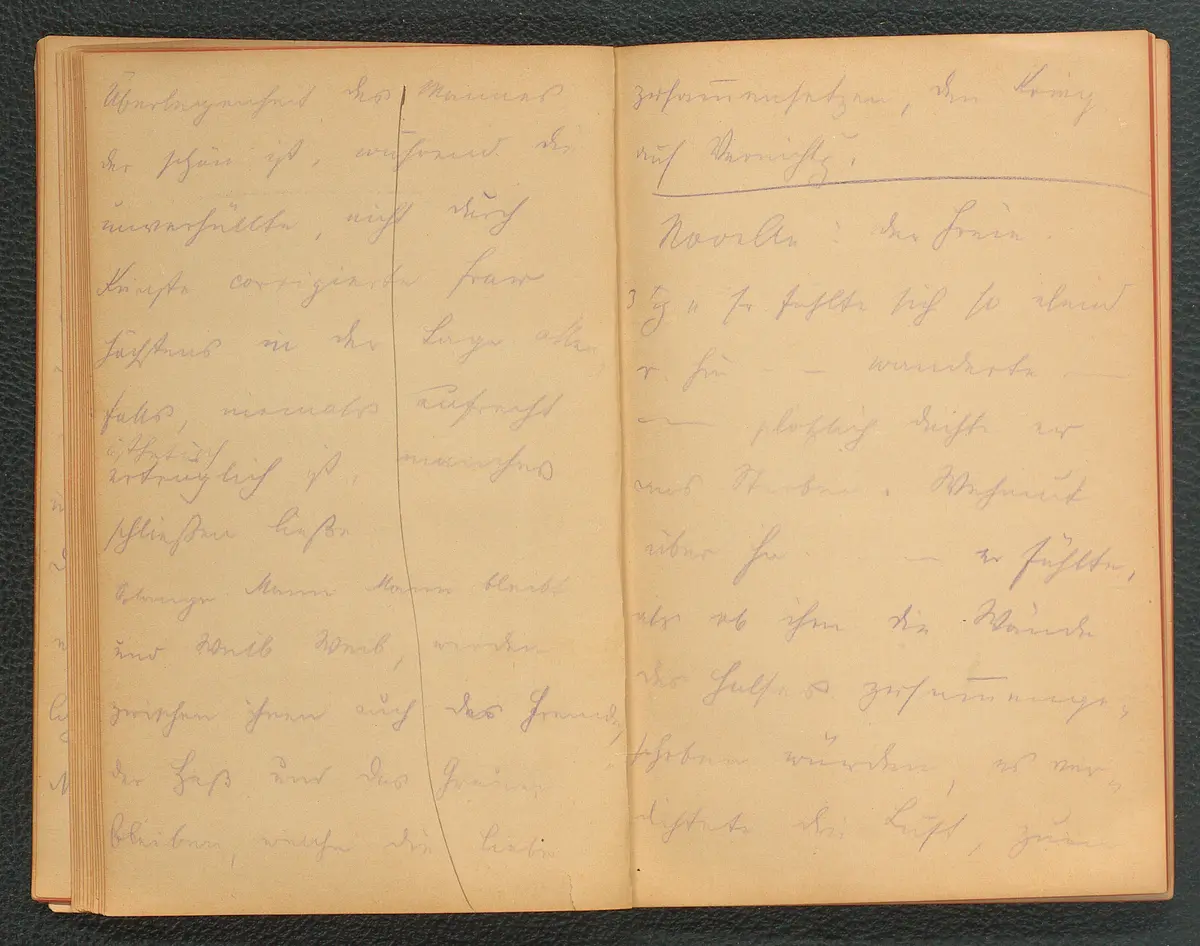 Überlegenheit des Mannes
der schön ist, während die
unverhüllte, nicht durch
Künste corrigierte Frau
höchstens in der Lage allen
falls, niemals aufrecht
ästhetisch
erträglich ist, manches
schließen ließe
Solange Mann Mann bleibt
und Weib Weib, werden
zwischen ihnen auch das Fremde,
der Haß und das Grauen
bleiben, welche die Liebe
zusam̅ensetzen, den Krieg
auf Vernichtg.
Novelle: der Freie
er fühlte sich so elend
wanderte —
— plötzlich dachte er
ans Sterben. Wehmut
über ihn — er fühlte,
als ob ihm die Wände
des Halses zusam̅enge-
schoben würden, es ver-
dichtete die Luft, zum